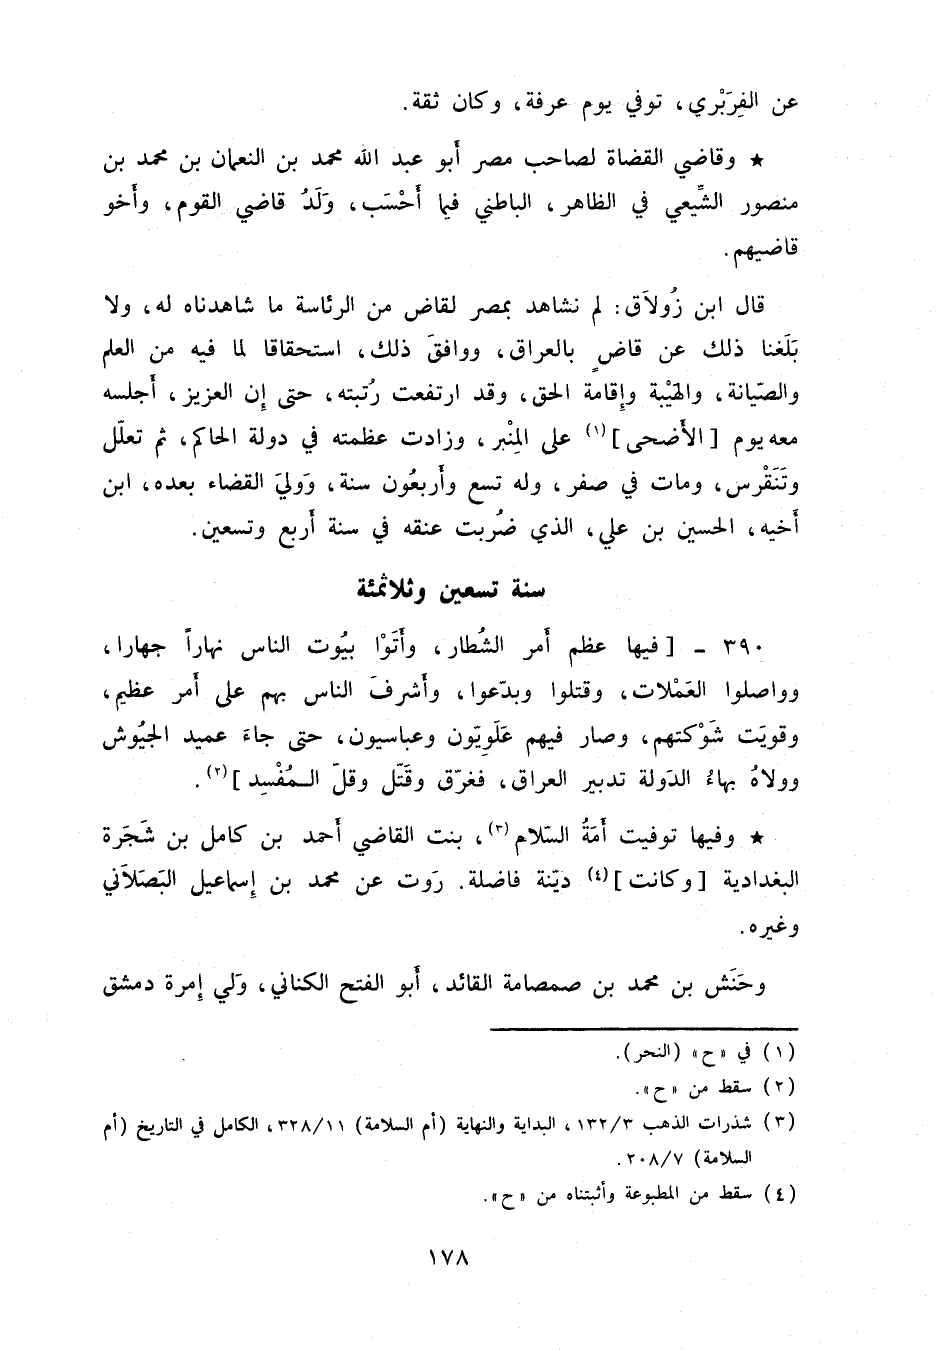 عن الفِرَبْري، توفي يوم عرفة، وكان ثقة.
★ وقاضي القضاة لصاحب مصر أبو عبد الله محمد بن النعمان بن محمد بن
منصور الشِّيعي في الظاهر، الباطني فيما أَحْسَب، وَلَدُ قاضي القوم، وأَخو
قاضيهم.
قال ابن زُولاَق: لم نشاهد بمصر لقاض من الرئاسة ما شاهدناه له، ولا
بَلَغنا ذلك عن قاضٍ بالعراق، ووافقَ ذلك، استحقاقا لما فيه من العلم
والصّيانة، والهَيْبة وإِقامة الحق، وقد ارتفعت رُتبته، حتى إن العزيز، أَجلسه
معه يوم [الأَضحى](١) على المِنْبر، وزادت عظمته في دولة الحاكم، ثم تعلّل
وتَنَقْرس، ومات في صفر، وله تسع وأَربعُون سنة، وَوليَ القضاء بعده، ابن
أَخيه، الحسين بن علي، الذي ضُربت عنقه في سنة أَربع وتسعين.
سنة تسعين وثلاثمئة
٣٩٠ - [فيها عظم أَمر الشُطار، وأَتَوْا بيُوت الناس نهاراً جهارا،
وواصلوا العَمْلات، وقتلوا وبدّعوا، وأَشرفَ الناس بهم على أَمر عظيم،
وقويَت شَوْكتهم، وصار فيهم عَلَويّون وعباسيون، حتى جاءَ عميد الجيُوش
وولاهُ بهاءُ الدَولة تدبير العراق، فغرّق وقَتّل وقلّ الـمُفْسِد](٢).
★ وفيها توفيت أَمَةُ السّلام(٣)، بنت القاضي أَحمد بن كامل بن شَجَرة
البغدادية [وكانت](٤) ديّنة فاضلة. رَوت عن محمد بن إِسماعيل البَصَلاَني
وغيره.
وحَنَش بن محمد بن صمصامة القائد، أَبو الفتح الكناني، وَلي إِمرة دمشق
(١) في «ح» (النحر).
(٢) سقط من «ح».
(٣) شذرات الذهب ١٣٢/٣، البداية والنهاية (أم السلامة) ٣٢٨/١١، الكامل في التاريخ (أم
السلامة) ٢٠٨/٧.
(٤) سقط من المطبوعة وأثبتناه من «ح».
١٧٨